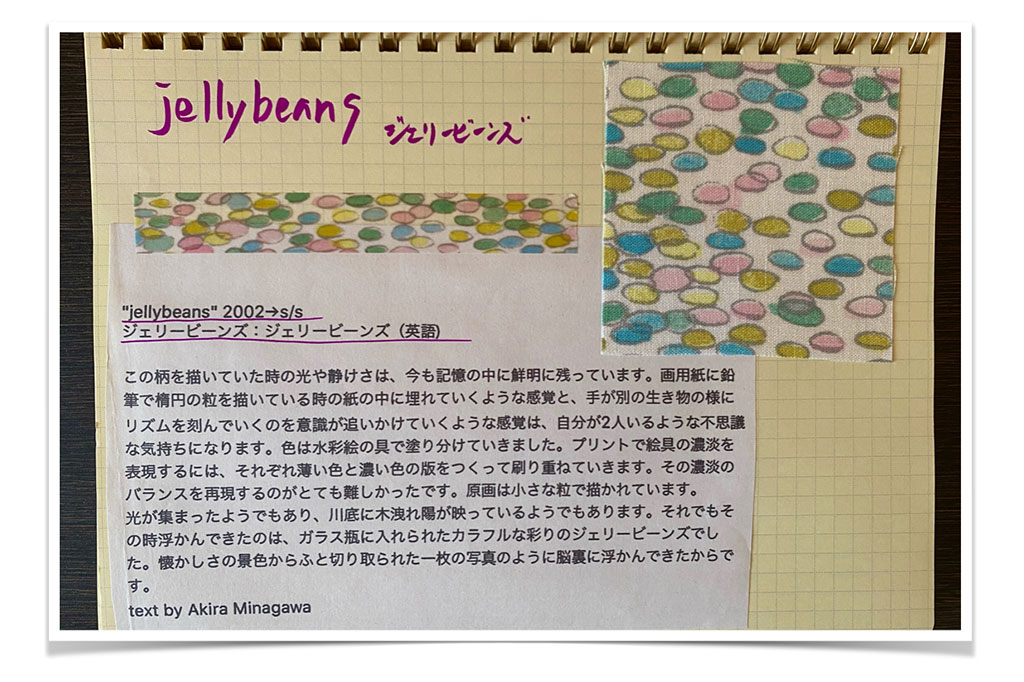 jellybeans
ジェリービーンズ
"jellybeans" 2002→s/s
ジェリービーンズ：ジェリービーンズ（英語）
この柄を描いていた時の光や静けさは、今も記憶の中に鮮明に残っています。画用紙に鉛
筆で楕円の粒を描いている時の紙の中に埋れていくような感覚と、手が別の生き物の様に
リズムを刻んでいくのを意識が追いかけていくような感覚は、自分が2人いるような不思議
な気持ちになります。色は水彩絵の具で塗り分けていきました。プリントで絵具の濃淡を
表現するには、それぞれ薄い色と濃い色の版をつくって刷り重ねていきます。その濃淡の
バランスを再現するのがとても難しかったです。原画は小さな粒で描かれています。
光が集まったようでもあり、川底に木洩れ陽が映っているようでもあります。それでもそ
の時浮かんできたのは、ガラス瓶に入れられたカラフルな彩りのジェリービーンズでし
た。懐かしさの景色からふと切り取られた一枚の写真のように脳裏に浮かんできたからで
す。
text by Akira Minagawa